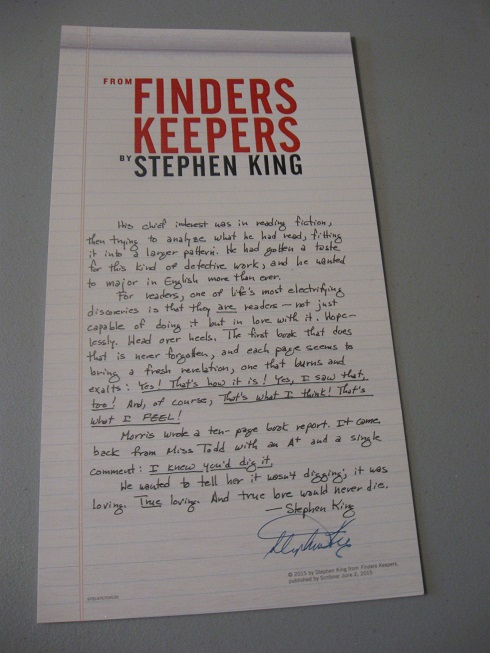 FROM
FINDERS
KEEPERS
BY STEPHEN KING
His chief interest was in reading fiction,
then trying to analyze what he had read, fitting
it into a larger pattern. He had gotten a taste
for this kind of detective work, and he wanted
to major in English more than ever.
For readers, one of life's most electrifying
discoveries is that they are readers — not just
capable of doing it but in love with it. Hope-
lessly. Head over heels. The first book that does
that is never forgotten, and each page seems to
bring a fresh revelation, one that burns and
exalts: Yes! That's how it is! Yes, I saw that,
too! And, of course, That's what I think! That's
what I FEEL!
Morris wrote a ten-page book report. It came
back from Miss Todd with an A+ and a single
comment: I knew you'd dig it.
He wanted to tell her it wasn't digging; it was
loving. True loving. And true love would never die.
— Stephen King
Stephen King
© 2015 by Stephen King from Finders Keepers,
published by Scribner June 2, 2015